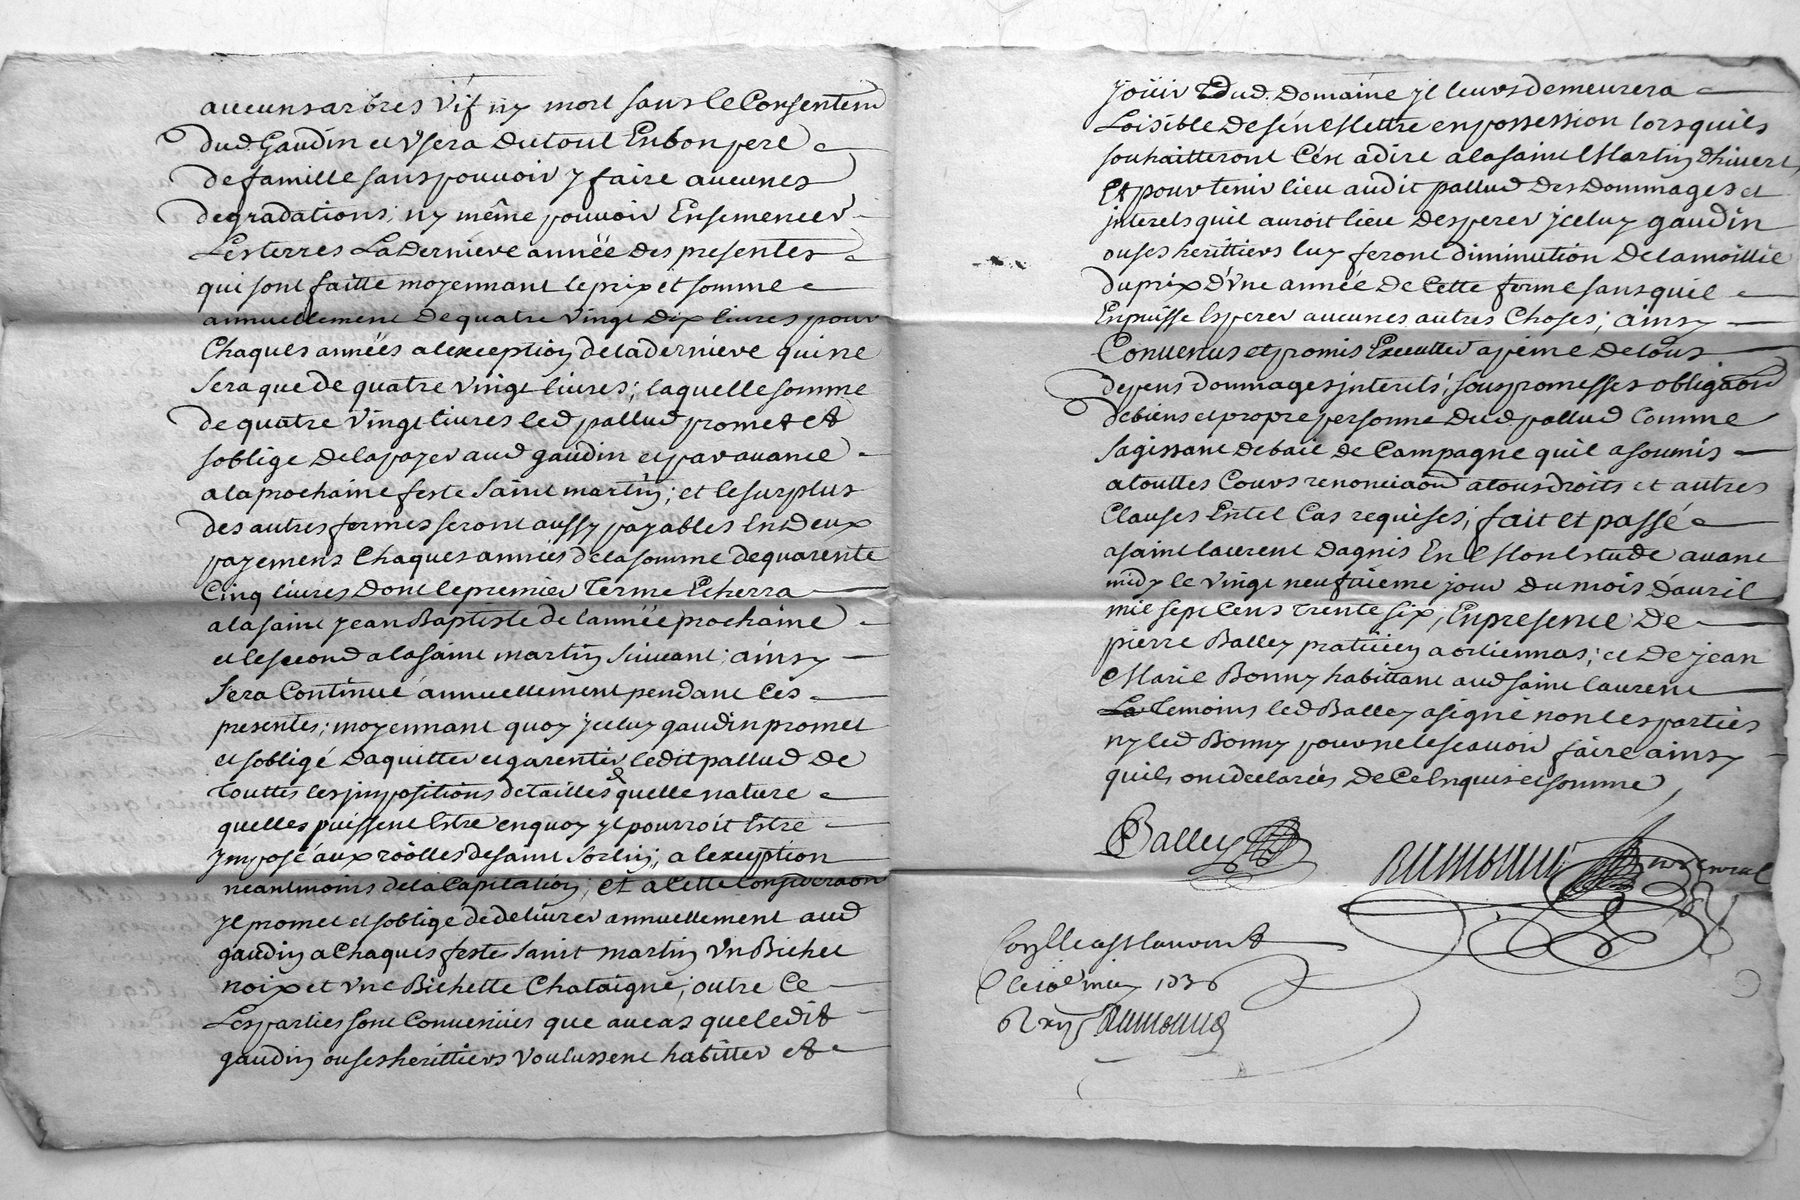 aucuns arbres vif ny mort sans le Consentem
dud. Gaudin et Usera du tout En bon pere
de famille sans pouvoir y faire aucunes
degradations; ny même pouvoir Ensemencer
Les terres La Derniere année des presentes
qui sont faitte moyennant le prix et somme
annuellement De quatre vingt Dix livres pour
Chaques années a lexception de la derniere qui ne
sera que de quatre vingt livres; laquelle somme
de quatre vingt livres led pallud promet et
soblige De la payer aud gaudin et par avance
a la prochaine feste saint martin; et le surplus
des autres fermes seront aussy payables En Deux
payemens Chaques années de la somme de quarente
Cinq livres Dont le premier Terme Echerra
a la saint Jean Baptiste de l'année prochaine
et le second a la saint martin suivant; ainsy
sera Continué annuellement pendant les
presentes; moyennant quoy jceluy gaudin promet
et sobligé Daquitter et garentir ledit pallud De
touttes les jmpositions de tailles quelle nature
quelles puissent Estre en quoy jl pourroit Estre
jmposé aux roolles de saint Sorlin; a lexception
neantmoins de la Capitation; et a Cette Consideraon
jl promet et soblige de delivrer annuellement aud
gaudin a Chaques feste saint martin Un Bichet
noix et une Bichette Chataigne; outre Ce
Les parties sont Convenües que au cas que ledit
gaudin ou ses herittiers voulussent habitter et
joüir Dud. Domaine jl leurs demeurera
Loisible De sén Mettre en possession lors quils
souhaitteront C'est a dire a la saint Martin dhivert
Et pour tenir lieu audit pallud Des Dommages et
jnterets quil auroit lieu Desperer jceluy gaudin
ou ses herittiers luy feront diminution De la moittie
du prix D'une année De Cette ferme sans quil
En puisse Esperer aucunes autres Choses; ainsy
Convenus et promis Executter a peine De tous
depens dommages jnterets; sous promesses obligaon
de biens et propre personne Dud. pallud Comme
sagissant de bail de Campagne quil a soumis
a touttes Cours renonciaon a tous droits et autres
Clauses En tel Cas requises; fait et passé
a saint laurent Dagnis En Mon Estude avant
midy le vingt neufaieme jour Du mois d'avril
mil sept Cens trente six, En presence De
pierre Balley praticien a ; et De jean
Marie Bonny habittant aud saint laurent
Temoins led Balley a signé non les parties
ny led Bonny pour ne le scavoir faire ainsy
quils ont declarées De Ce Enquis et somme
Balley